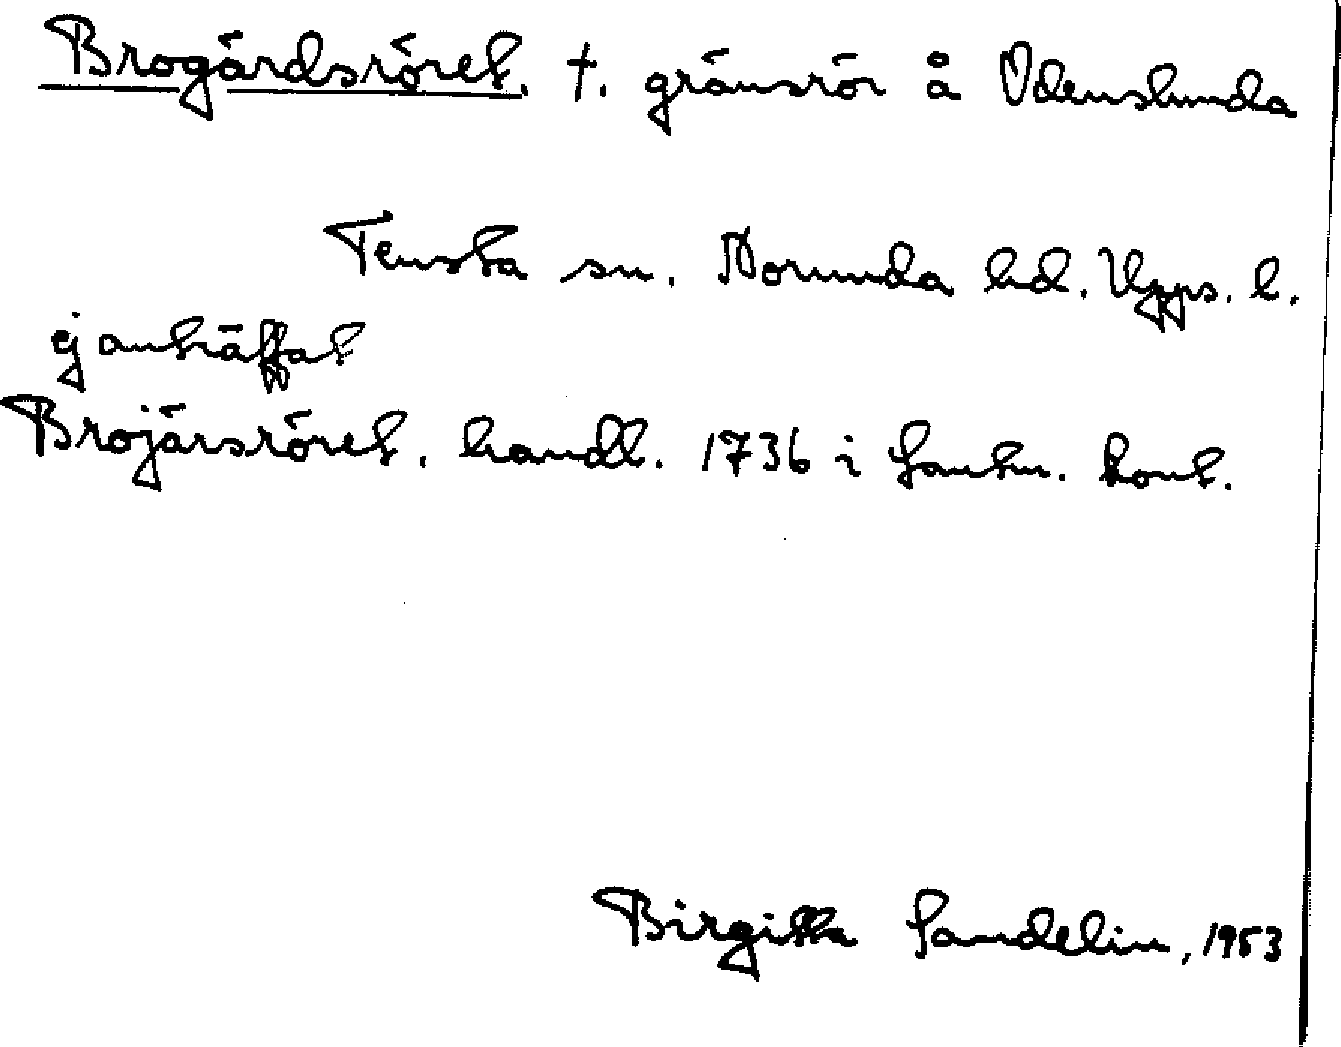 Brogårdsröret. †. gränsrör å Odenslunda
Tensta sn. Norunda hd. Upps. l.
ej anträffat
Brojärsröret. handl. 1736 i Lantm. kont.
Birgitta Sandelin, 1953